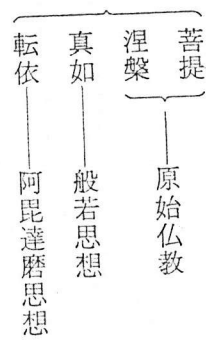 菩提
涅槃
原始仏教
真如――般若思想
転依――阿毘達磨思想